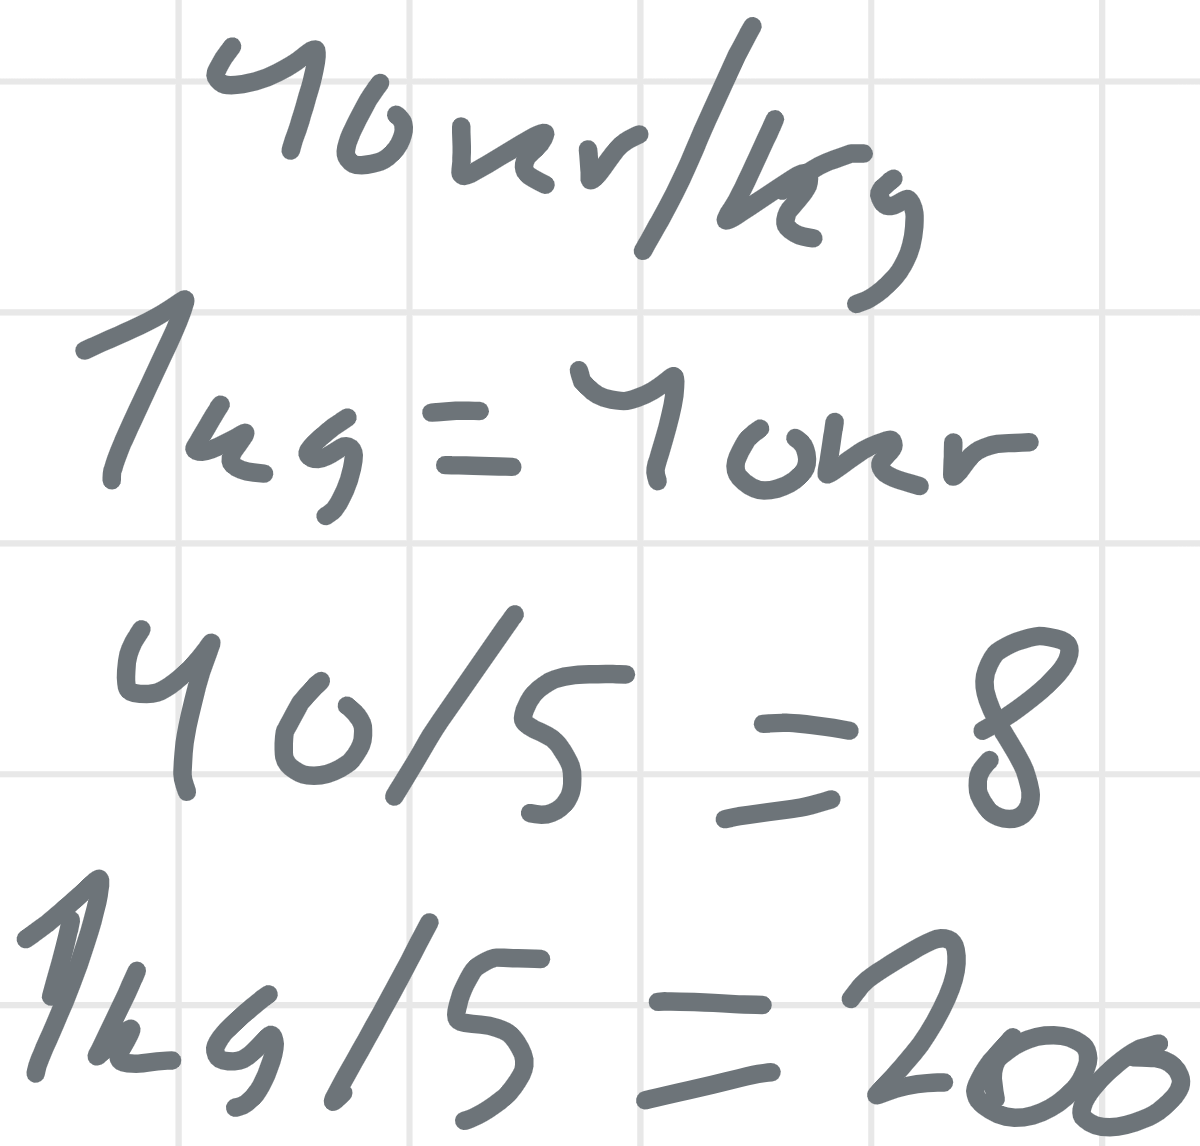 40kr/kg
1kg=40kr
40/5=8
1kg/5=200